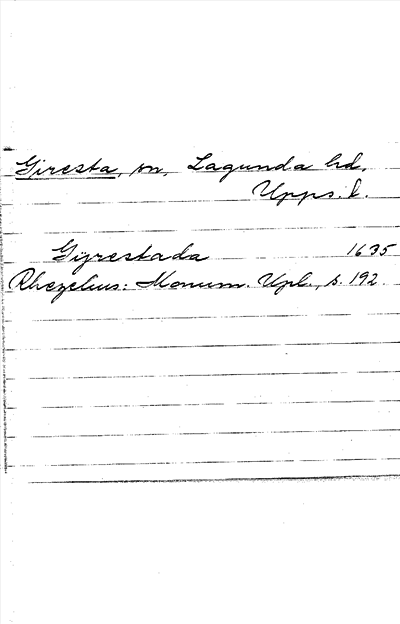 Giresta, sn, Lagunda hd,
Upps. l.
Gijrestada 1635
Rhezelius: Monum. Upl., s. 192.